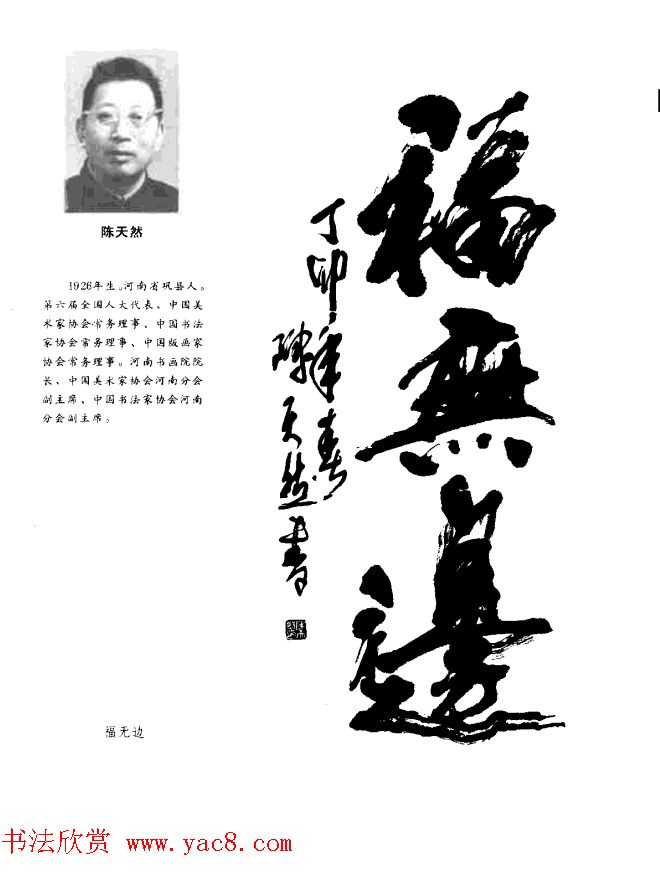 陈天然
1926年生。河南省巩县人。
第六届全国人大代表、中国美
术家协会常务理事、中国书法
家协会常务理事、中国版画家
协会常务理事。河南书画院院
长、中国美术家协会河南分会
副主席、中国书法家协会河南
分会副主席。
福無邊
丁卯年春
陳天然書
福无边
书法欣赏 www.yac8.com